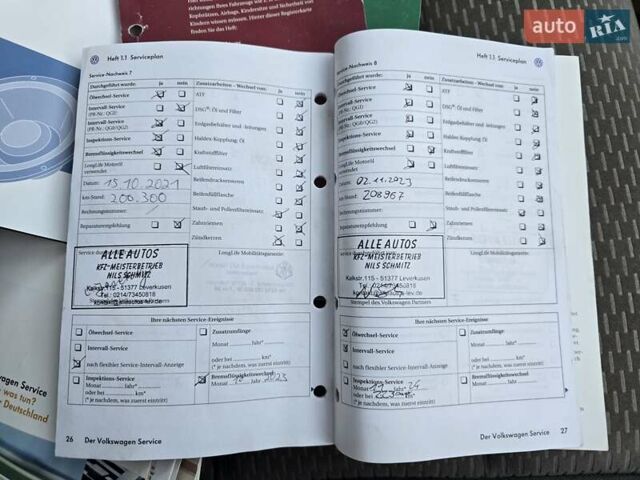 richtungen Ihres Fahrzeugs wie z.
Kopfstützen, Airbags, Kindersitze und Sicherheit von
Kindern wissen müssen. Hinter dieser Registerkarte
finden Sie das Heft:
auto RIA.com
Heft 1.1 Serviceplan
Service-Nachweis 7
Durchgeführt wurde: ja nein
Ölwechsel-Service
Intervall-Service
(PR-Nr.: QG1)
Intervall-Service
(PR-Nr.: QG0/QG2)
Inspektions-Service
Bremsflüssigkeitswechsel
LongLife Motoröl
verwendet
Datum: 15.10.2021
km-Stand: 200.300
Rechnungsnummer:
Reparaturempfehlung
Zusatzarbeiten - Wechsel von: ja nein
ATF
DSG® Öl und Filter
Erdgasbehälter und -leitungen
Haldex-Kupplung: Öl
Kraftstofffilter
Luftfiltereinsatz
Reifendruckseren
Reifenfüllflasche
Staub- und Pollenfiltereinsatz
Zahnriemen
Zündkerzen
LongLife Mobilitätsgarantie:
ALLE AUTOS
KFZ-MEISTERBETRIEB
NILS SCHMITZ
Kalkstr.115 - 51377 Leverkusen
Tel.: 0214/73450818
Ihre nächsten Service-Ereignisse
Ölwechsel-Service
Intervall-Service
nach flexibler Service-Intervall-Anzeige
Inspektions-Service
Monat Jahr*
oder bei km*
(* je nachdem, was zuerst eintritt)
Zusatzumfänge
Monat Jahr*
oder bei km*
(* je nachdem, was zuerst eintritt)
Bremsflüssigkeitswechsel
Monat 10 Jahr 2023
26 Der Volkswagen Service
Heft 1.1 Serviceplan
Service-Nachweis 8
Durchgeführt wurde: ja nein
Ölwechsel-Service
Intervall-Service
(PR-Nr.: QG1)
Intervall-Service
(PR-Nr.: QG0/QG2)
Inspektions-Service
Bremsflüssigkeitswechsel
LongLife Motoröl
verwendet
Datum: 02.11.2023
km-Stand: 208967
Rechnungsnummer:
Reparaturempfehlung
Zusatzarbeiten - Wechsel von: ja nein
ATF
DSG® Öl und Filter
Erdgasbehälter und -leitungen
Haldex-Kupplung: Öl
Kraftstofffilter
Luftfiltereinsatz
Reifendruckseren
Reifenfüllflasche
Staub- und Pollenfiltereinsatz
Zahnriemen
Zündkerzen
LongLife Mobilitätsgarantie:
ALLE AUTOS
KFZ-MEISTERBETRIEB
NILS SCHMITZ
Kalkstr.115 - 51377 Leverkusen
Tel.: 0214/73450818
Stempel des Volkswagen Partners
Ihre nächsten Service-Ereignisse
Ölwechsel-Service
Intervall-Service
nach flexibler Service-Intervall-Anzeige
Inspektions-Service
Monat 11 Jahr 24
oder bei km*
(* je nachdem, was zuerst eintritt)
Zusatzumfänge
Monat Jahr*
oder bei km*
(* je nachdem, was zuerst eintritt)
Bremsflüssigkeitswechsel
Monat Jahr
Der Volkswagen Service 27
wagen Service
was tun?
Deutschland